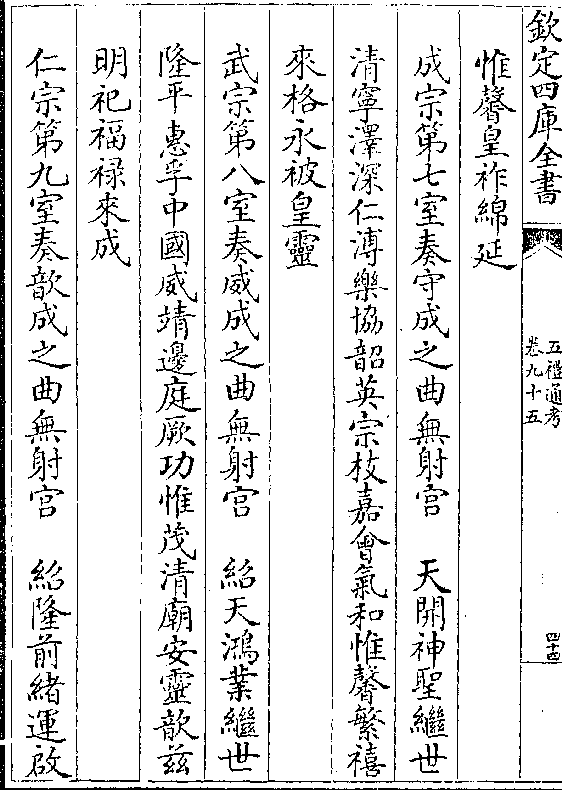 欽定四庫全書
五禮通考
卷九十五
四十四
惟馨皇祚綿延
成宗第七室奏守成之曲無射宮　天開神聖繼世
清寧澤深仁溥樂協韶英宗枝嘉會氣和惟馨繁禧
來格永被皇靈
武宗第八室奏威成之曲無射宮　紹天鴻業繼世
隆平惠孚中國威靖邊庭厥功惟茂清廟安靈歆茲
明祀福禄來成
仁宗第九室奏歆成之曲無射宮　紹隆前緒運啟